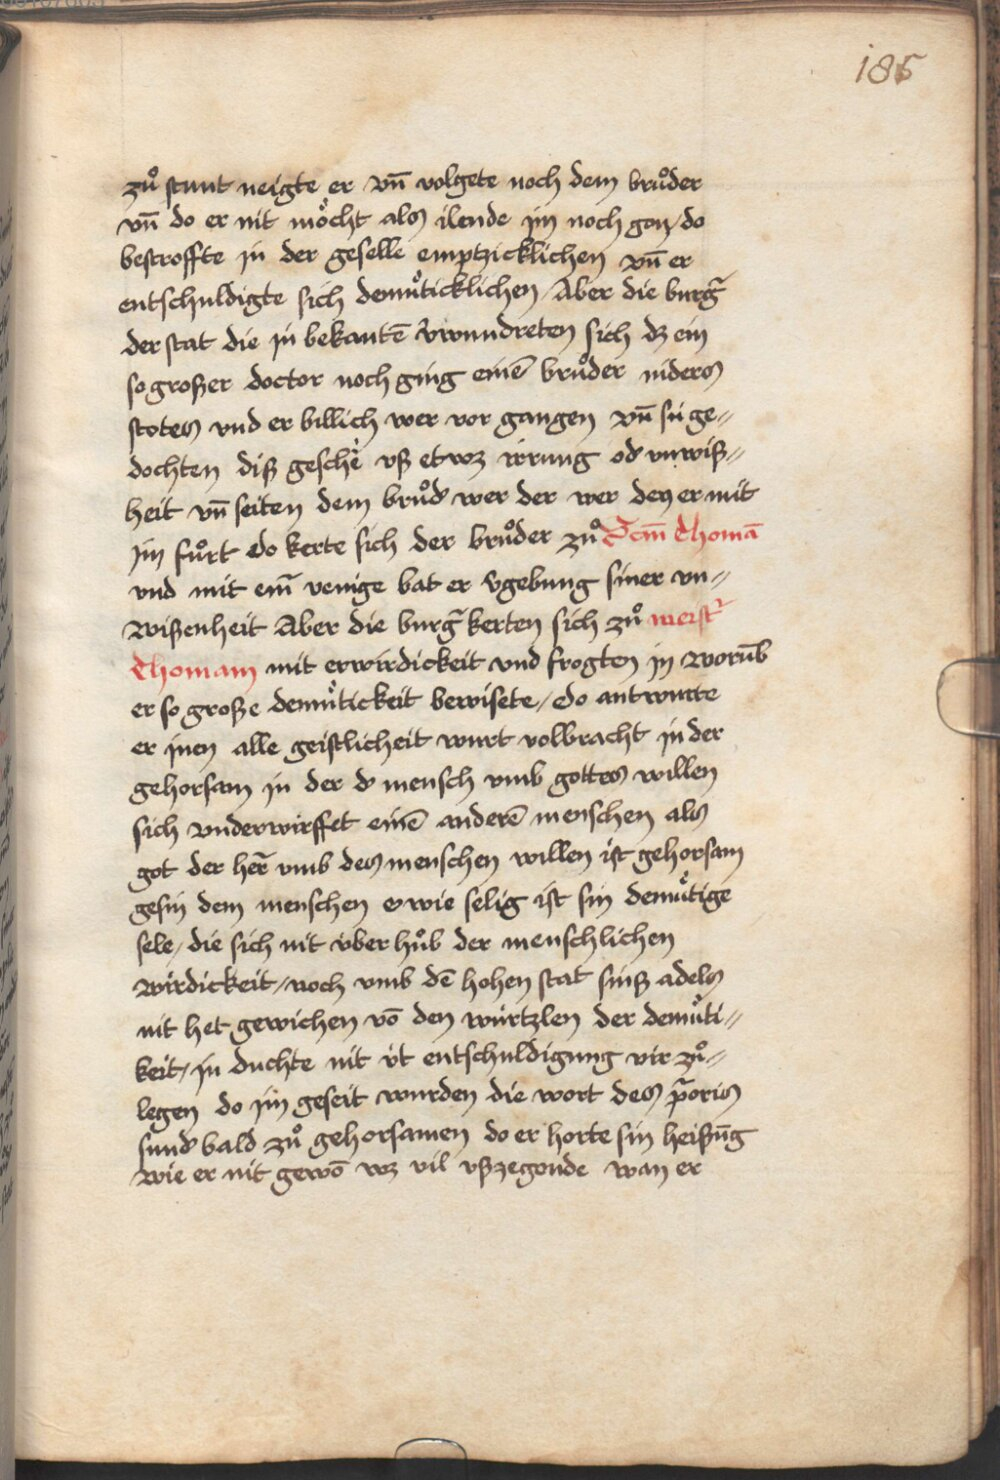 185
zuͦ stunt neigte er vn̄ volgete noch dem bruͦder
vn̄ do er nit moͤcht als ilende jm noch gon / do
bestroffte in der geselle emptzicklichen vn̄ er
entschuldigte sich demuͤticklichen / Aber die burg̃
der stat die in bekantē v̾wundreten sich dz ein
so großer doctor noch ging einē bruͦder niders
stotes vnd er billich wer vor gangen vn̄ sú ge⸗
dochten diß geschē vß etwz irrung od̾ vnwiß⸗
heit vn̄ seiten dem bruͦd̾ wer der wer den er mit
jm fuͦrt do kerte sich der bruͦder zuͦ Scm̄ Thomā
vnd mit em̄ venige bat er v̾gebung siner vn⸗
wißenheit Aber die burg̃ kerten sich zuͦ meist̾
Thomam mit erwirdickeit vnd frogten in worūb
er so große demuͤtickeit bewisete / do antwurte
er jnen alle geistlicheit wurt volbracht in der
gehorsam in der d̾ mensch vmb gottes willen
sich vnderwirffet einē anderē menschen als
got der her̄ vmb des menschen willen ist gehorsam
gesin dem menschen o wie selig ist sin demuͤtige
sele / die sich nit v́ber huͦb der menschlichen
wirdickeit / noch vmb dē hohen stat sinß adels
nit het gewichen vō den wúrtzlen der demuͤti⸗
keit / in duchte nit v́t entschuldigung vir zuͦ⸗
legen do jm geseit wurden die wort des p̃oris
sund̾ bald zuͦ gehorsamen do er horte sin heißūg
wie er nit gewō wz vil vßzegonde wan er